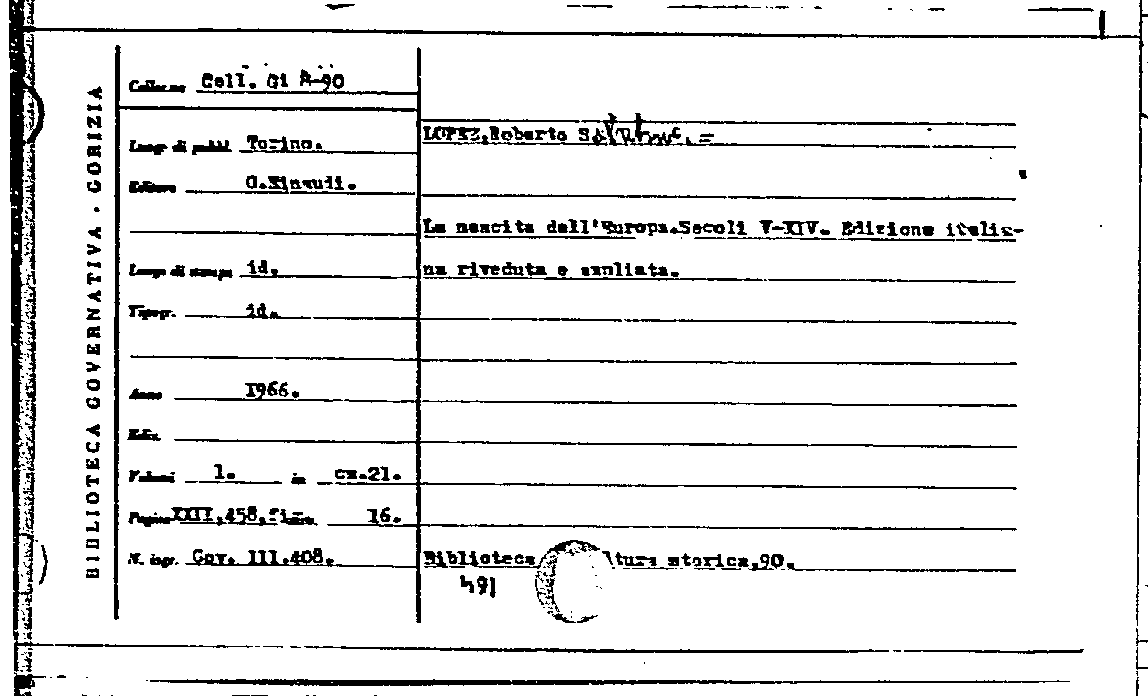 BIBLIOTECA GOVERNATIVA . GORIZIA
Colloc.ne Coll. Gi A-90
Luogo di pubbl. Torino.
Editore G.Einaudi.
Luogo di stampa id.
Tipogr. id.
Anno 1966.
Ediz.
Volumi 1. in cm.21.
Pagine XXII,458, 16.
N. ingr. Gov. 111.408.
LOPEZ,Roberto
La nascita dell'Europa.Secoli V-XIV. Edizione italia-
na riveduta e ampliata.
Biblioteca ltura storica,90.
491